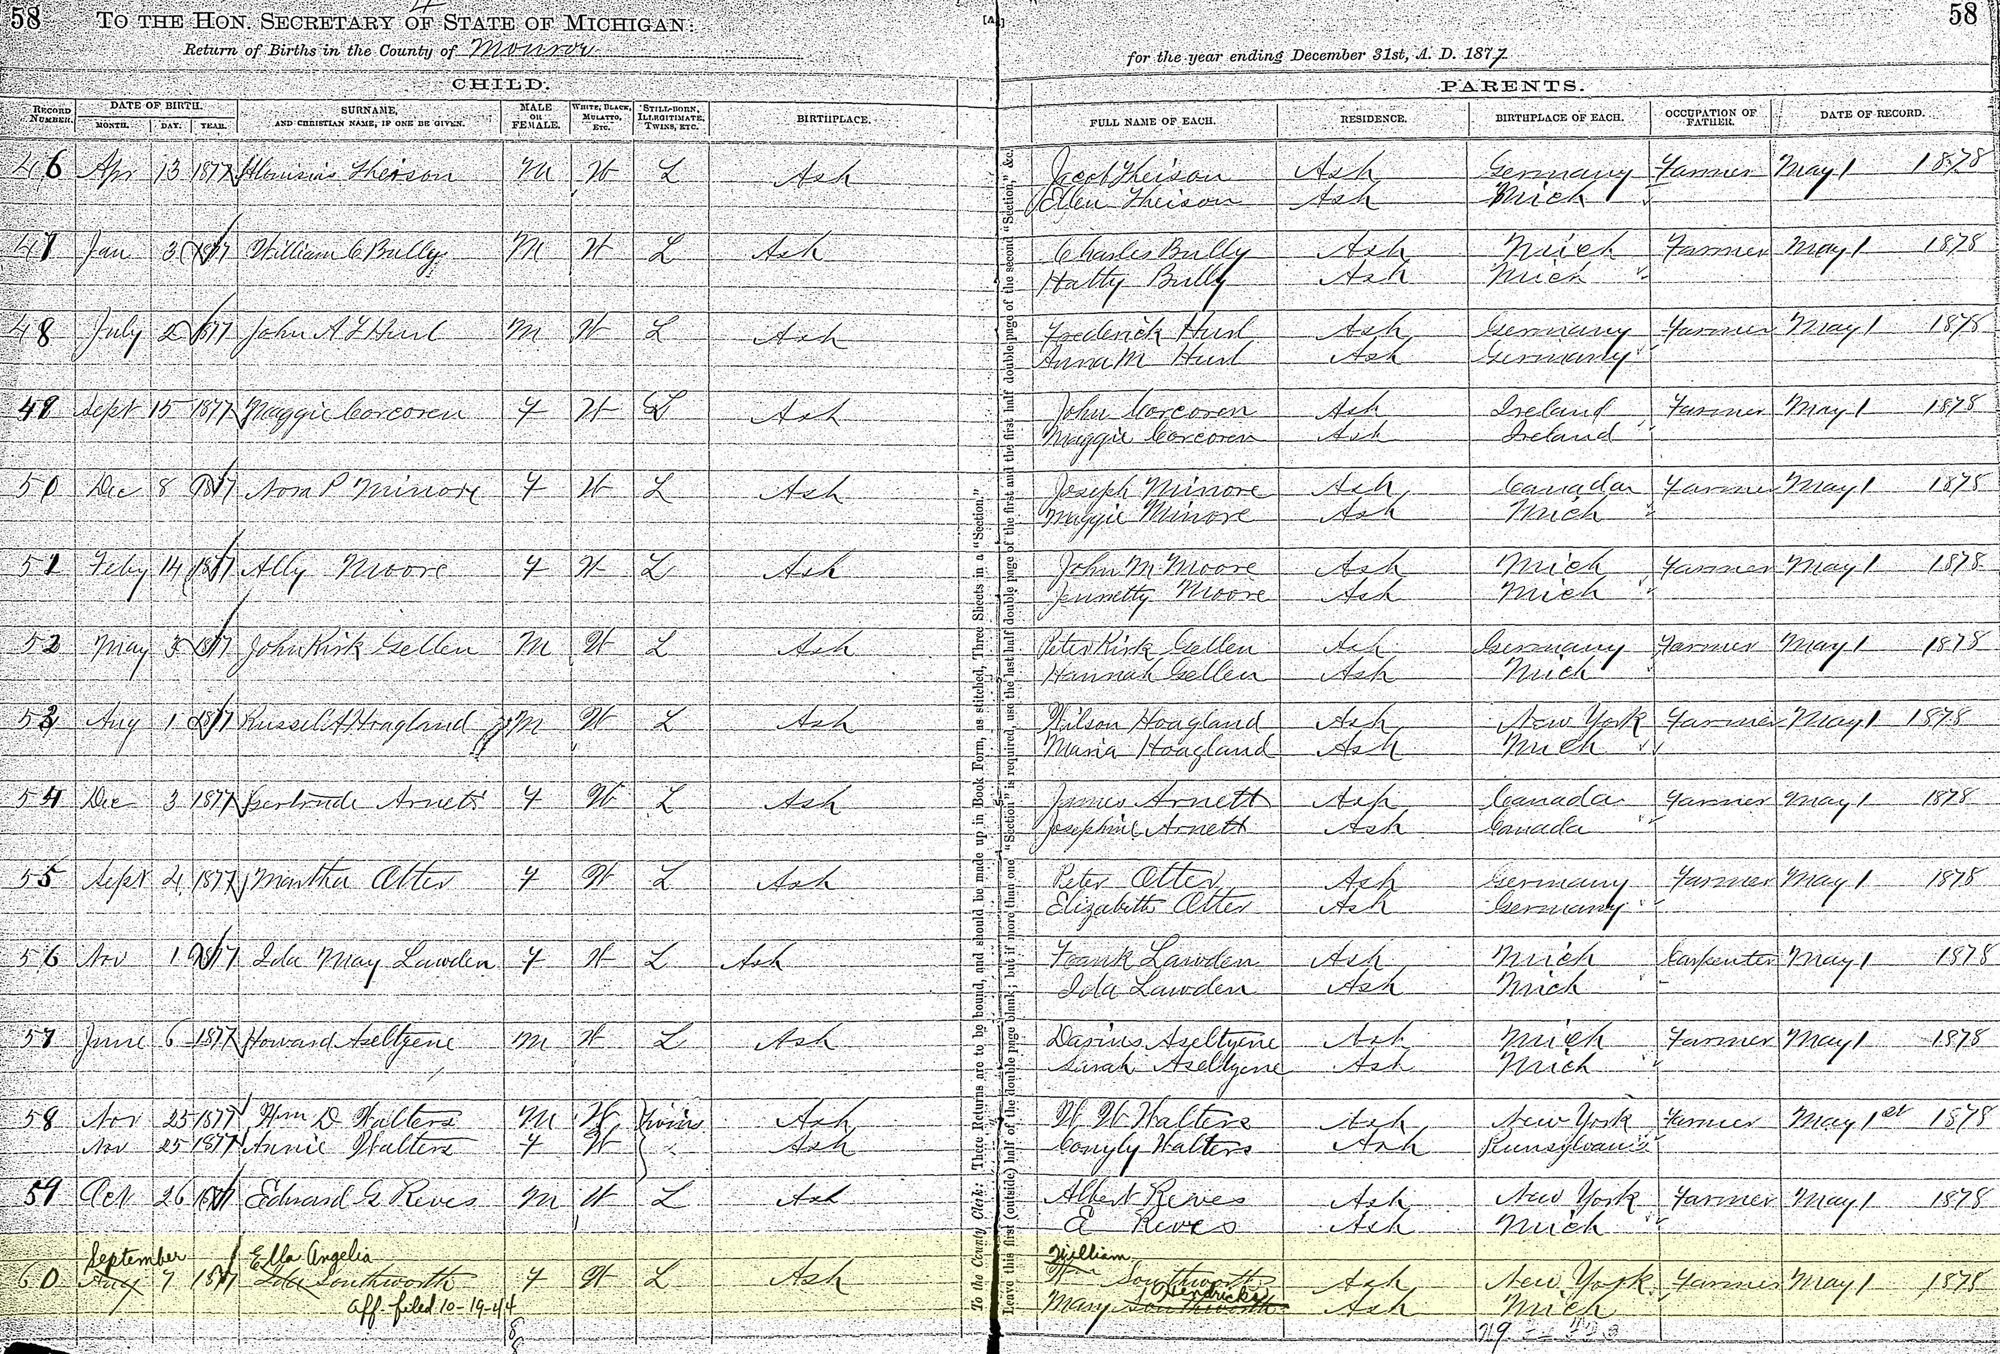 58
TO THE HON. SECRETARY OF STATE OF MICHIGAN:
Return of Births in the County of Monroe
for the year ending December 31st, A. D. 1877
58
CHILD.
PARENTS.
RECORD NUMBER.
DATE OF BIRTH.
MONTH. DAY. YEAR.
SURNAME, AND CHRISTIAN NAME, IF ONE BE GIVEN.
MALE OR FEMALE.
WHITE, BLACK, MULATTO, ETC.
STILL-BORN, ILLEGITIMATE, TWINS, ETC.
BIRTHPLACE.
FULL NAME OF EACH.
RESIDENCE.
BIRTHPLACE OF EACH.
OCCUPATION OF FATHER.
DATE OF RECORD.
46 Apr 13 1877 Theison M W L Ash Jacob Theison Ash Germany Farmer May 1 1878
Ellen Theison Ash Mich
47 Jan 1877 William C Bully M W L Ash Charles Bully Ash Mich Farmer May 1 1878
Hatty Bully Ash Mich
48 July 2 1877 John A F Hurl M W L Ash Frederick Hurl Ash Germany Farmer May 1 1878
Anna M Hurl Ash Germany
49 Sept 15 1877 Maggie Corcoren F W L Ash John Corcoren Ash Ireland Farmer May 1 1878
Maggie Corcoren Ash Ireland
50 Dec 8 1877 Nora P Minore F W L Ash Joseph Minore Ash Canada Farmer May 1 1878
Maggie Minore Ash Mich
51 Feby 14 1877 Ally Moore F W L Ash John M Moore Ash Mich Farmer May 1 1878
Jennetty Moore Ash Mich
52 May 3 1877 John Kirk Gellen M W L Ash Peter Kirk Gellen Ash Germany Farmer May 1 1878
Hannah Gellen Ash Mich
53 Aug 1 1877 Russel A Hoagland M W L Ash Wilson Hoagland Ash New York Farmer May 1 1878
Maria Hoagland Ash Mich
54 Dec 3 1877 Gertrude Arnett F W L Ash James Arnett Ash Canada Farmer May 1 1878
Josephine Arnett Ash Canada
55 Sept 1877 Martha Otter F W L Ash Peter Otter Ash Germany Farmer May 1 1878
Elizabeth Otter Ash Germany
56 Nov 1877 Ida May Lawden F W L Ash Frank Lawden Ash Mich Carpenter May 1 1878
Ida Lawden Ash Mich
57 June 6 1877 Howard Aseltyene M W L Ash Darius Aseltyene Ash Mich Farmer May 1 1878
Sarah Aseltyene Ash Mich
58 Nov 25 1877 Wm D Walters M W Twins Ash W W Walters Ash New York Farmer May 1st 1878
Nov 25 1877 Annie Walters F W Ash Walters Ash
59 Oct 26 1877 Edward G Reves M W L Ash Albert Reves Ash New York Farmer May 1 1878
E Reves Ash Mich
September Ella Angelia William
60 Aug 7 1877 Ida Southworth F W L Ash Wm Southworth Ash New York Farmer May 1 1878
Hendricks
aff. filed 10-19-44 Mary Southworth Ash Mich
To the County Clerk: These Returns are to be bound, and should be made up in Book Form, as stitched, Three Sheets in a "Section."
Leave this first (outside) half of the double page blank; but if more than one "Section" is required, use the last half double page of the first and the first half double page of the second "Section," &c.